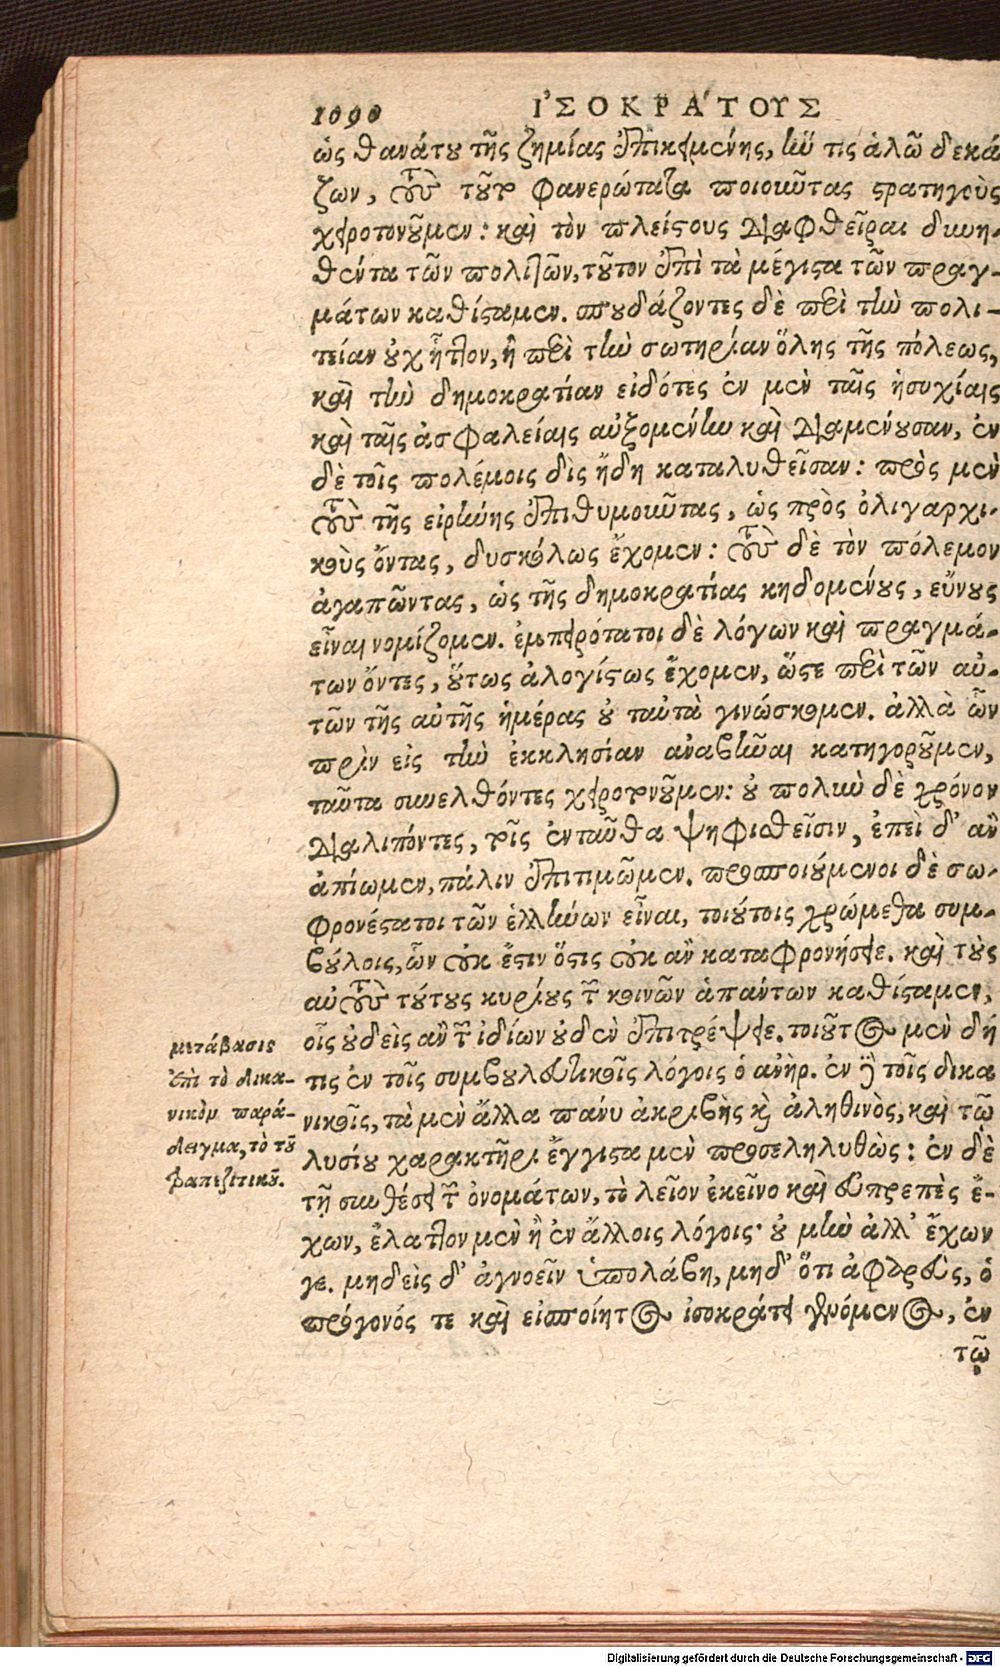 1090 ἸΣΟΚΡΆΤΟΥΣ
ὡς θανάτου τῆς ζημίας ἐπικειμένης, ἤν τις ἁλῷ δεκά
ζων, τοὺς τοῦτο φανερώτατα ποιοῦντας στρατηγοὺς
χειροτονοῦμεν: καὶ τὸν πλείστους διαφθεῖραι δυνη-
θέντα τῶν πολιτῶν, τοῦτον ἐπὶ τὰ μέγιστα τῶν πραγ-
μάτων καθίσταμεν. σπουδάζοντες δὲ περὶ τὴν πολι-
τείαν οὐχ ἧττον, ἢ περὶ τὴν σωτηρίαν ὅλης τῆς πόλεως,
καὶ τὴν δημοκρατίαν εἰδότες ἐν μὲν ταῖς ἡσυχίαις
καὶ ταῖς ἀσφαλείαις αὐξομένην καὶ διαμένουσαν, ἐν
δὲ τοῖς πολέμοις δὶς ἤδη καταλυθεῖσαν: πρὸς μὲν
τοὺς τῆς εἰρήνης ἐπιθυμοῦντας, ὡς πρὸς ὀλιγαρχι-
κοὺς ὄντας, δυσκόλως ἔχομεν: τοὺς δὲ τὸν πόλεμον
ἀγαπῶντας, ὡς τῆς δημοκρατίας κηδομένους, εὔνους
εἶναι νομίζομεν. ἐμπειρότατοι δὲ λόγων καὶ πραγμά-
των ὄντες, οὕτως ἀλογίστως ἔχομεν, ὥστε περὶ τῶν αὐ-
τῶν τῆς αὐτῆς ἡμέρας οὐ ταὐτὰ γινώσκομεν. ἀλλὰ ὧν
πρὶν εἰς τὴν ἐκκλησίαν ἀναβῆναι κατηγοροῦμεν,
ταῦτα συνελθόντες χειροτονοῦμεν: οὐ πολὺν δὲ χρόνον
διαλιπόντες, τοῖς ἐνταῦθα ψηφισθεῖσιν, ἐπεὶ δ' ἂν
ἀπίωμεν, πάλιν ἐπιτιμῶμεν. προσποιούμενοι δὲ σω-
φρονέστατοι τῶν ἑλλήνων εἶναι, τοιούτοις χρώμεθα συμ-
βούλοις, ὧν οὐκ ἔστιν ὅστις οὐκ ἂν καταφρονήσειε. καὶ τοὺς
αὐτοὺς τούτους κυρίους τῶν κοινῶν ἁπάντων καθίσταμεν,
οἷς οὐδεὶς ἂν τῶν ἰδίων οὐδὲν ἐπιτρέψειε. τοιοῦτος μὲν δή
τις ἐν τοῖς συμβουλευτικοῖς λόγοις ὁ ἀνήρ. ἐν δὲ τοῖς δικα
νικοῖς, τὰ μὲν ἄλλα πάνυ ἀκριβὴς καὶ ἀληθινὸς, καὶ τῷ
λυσίου χαρακτῆρι ἔγγιστα μὲν προσεληλυθὼς: ἐν δὲ
τῇ συνθέσει τῶν ὀνομάτων, τὸ λεῖον ἐκεῖνο καὶ εὐπρεπὲς ἔ-
χων, ἐλαττον μὲν ἢ ἐν ἄλλοις λόγοις· οὐ μὴν ἀλλ' ἔχων
γε. μηδεὶς δ' ἀγνοεῖν ὑπολάβῃ, μηδ' ὅτι ἀφαρεὺς, ὁ
πρόγονός τε καὶ εἰσποίητος ἰσοκράτει γενόμενος, ἐν
τῷ
μετάβασις
ἐπὶ τὸ δικα-
νικὸν παρά-
δειγμα, τὸ τοῦ
τραπεζιτικοῦ.
Digitalisierung gefördert durch die Deutsche Forschungsgemeinschaft - DFG